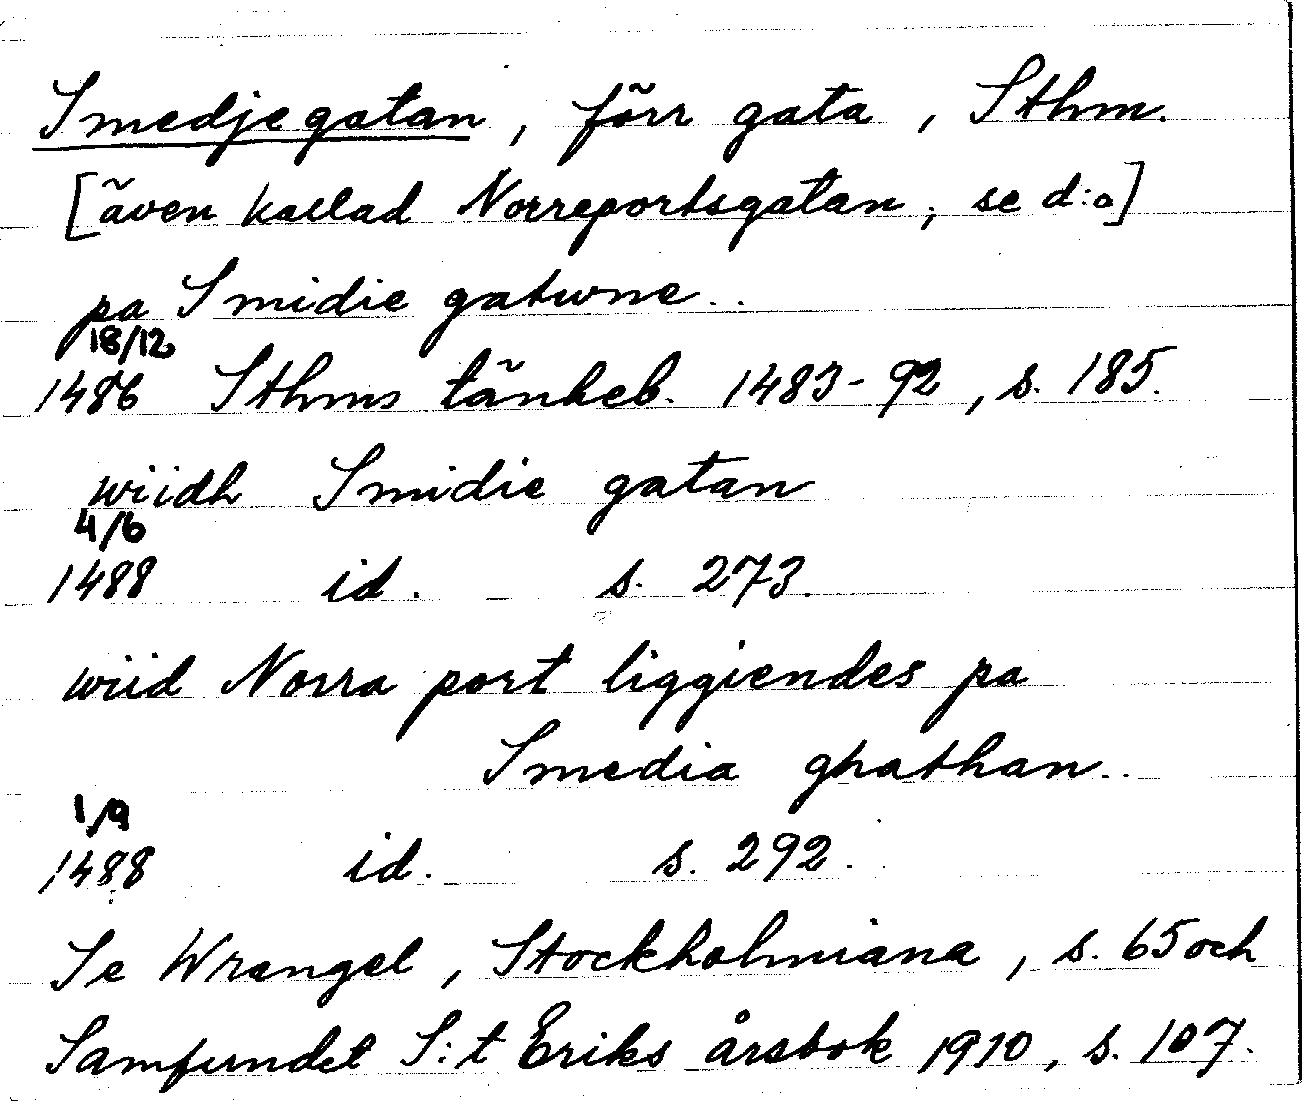 Smedjegatan, förr gata, Sthm.
[även kallad Norreportsgatan, se d:o]
pa Smidie gatwne..
18/12
1486 Sthms tänkeb. 1483-92, s. 185.
wiidh Smidie gatan
4/6
1488 id. s. 273.
wiid Norra port liggiendes pa
Smedia ghathan..
1/9
1488 id. s. 292.
Se Wrangel, Stockholmiana, s. 65 och
Samfundet S:t Eriks årsbok 1910, s. 107.